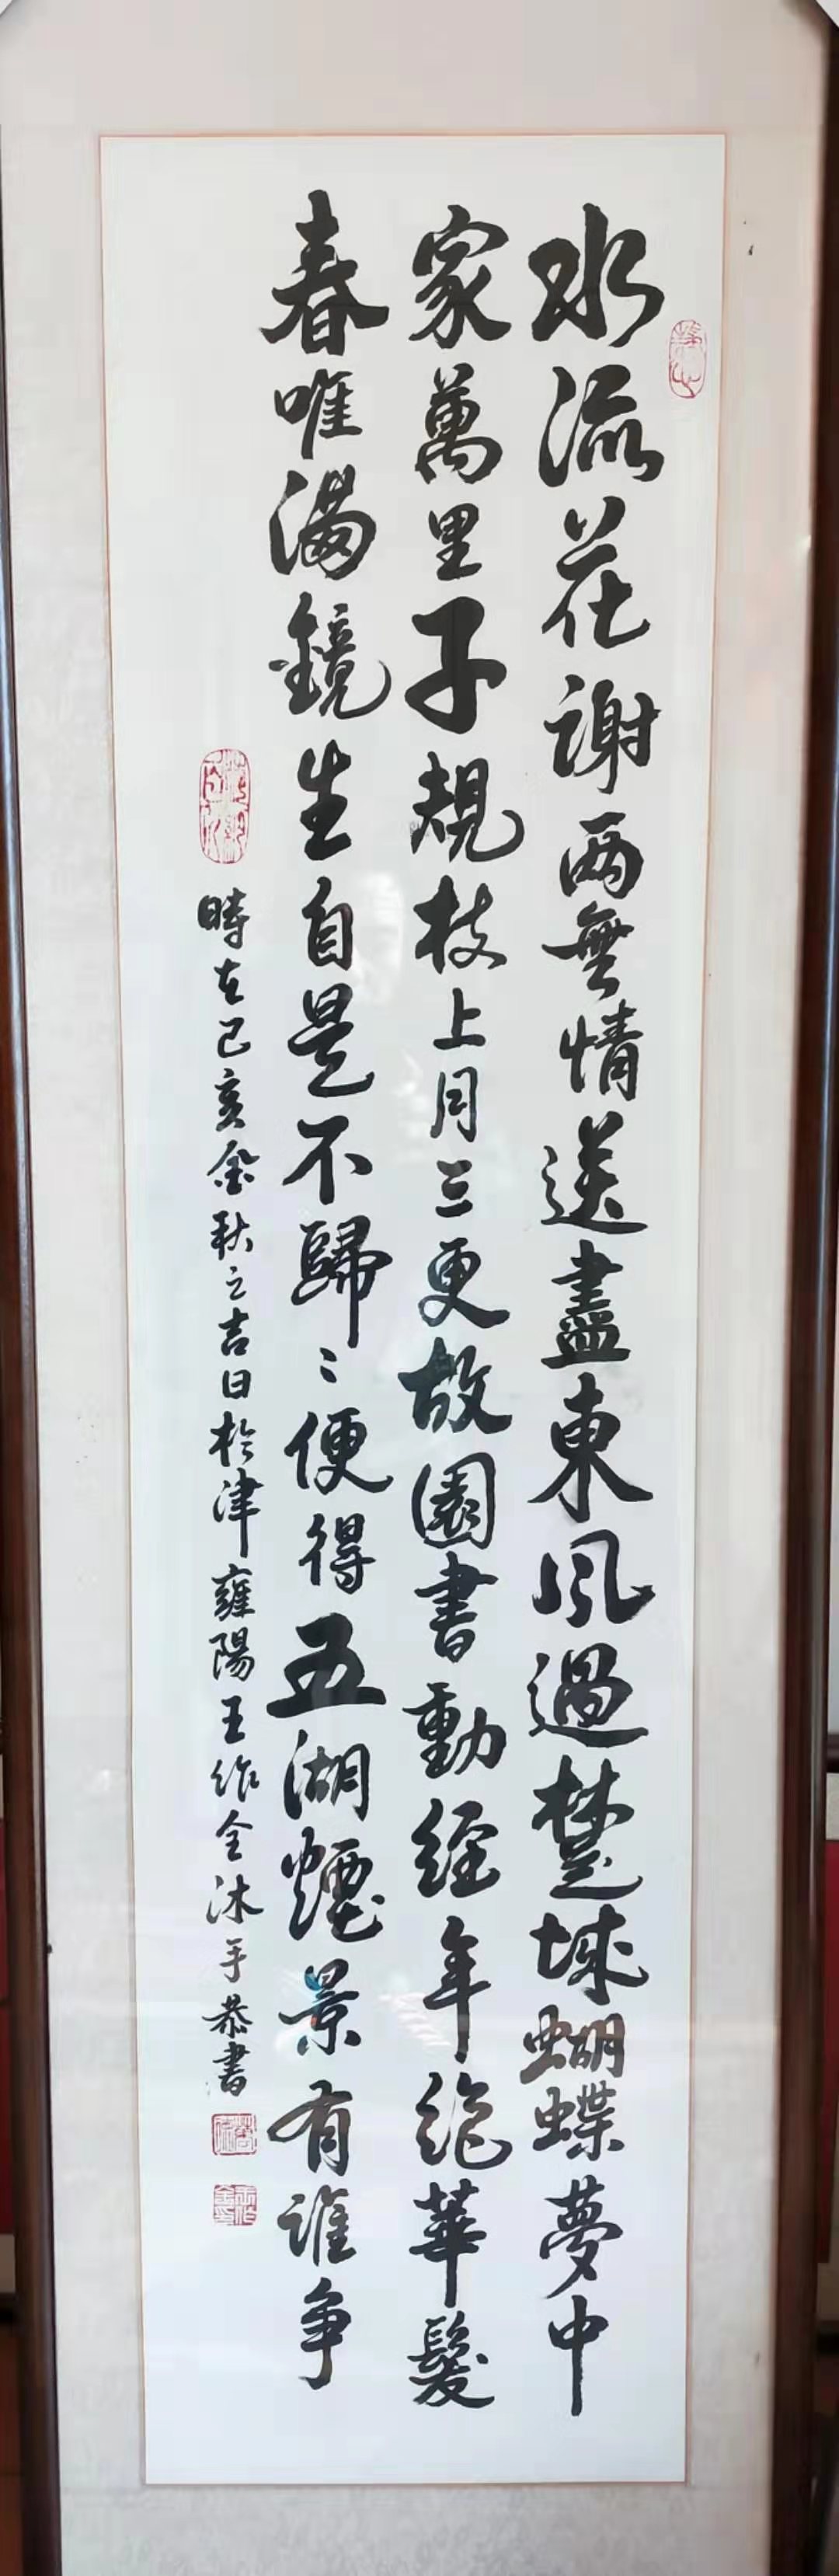 水流花謝兩無情送盡東風過楚城蝴蝶夢中
家萬里子規枝上月三更故園書動經年絕華髮
春唯滿鏡生自是不歸〻便得五湖煙景有誰爭
時在己亥金秋之吉日於津雍陽王作全沐手恭書